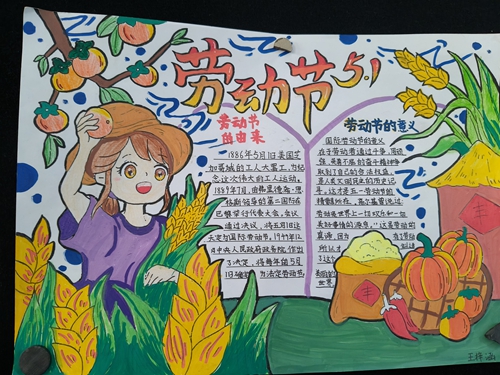 劳动节5.1
劳动节
的由来
1886年5月1日美国芝
加哥城的工人大罢工,为纪
念这次伟大的工人运动。
1889年7月,由弗里德希·恩
格斯领导的第二国际在
巴黎举行代表大会,会议
通过决议,将五月1日这
天定为国际劳动节,1949年12
月中央人民政府政务院作出
了决定,将每年的5月
1日确 为法定劳动节
劳动节的意义
国际劳动节的意义
在于劳动者通过斗争,用顽
强、英勇不屈的奋斗精神争
取到了自己的合法权益,
是人类文明民主的历史记
步,这才是五一劳动节的
精髓所在,高尔基曾说过
劳动是世界上一切欢乐和一切
美好事情的源泉,"这是劳动的
真谛,因为
所以才
了这个
美丽的
世界
丰
丰
王梓涵